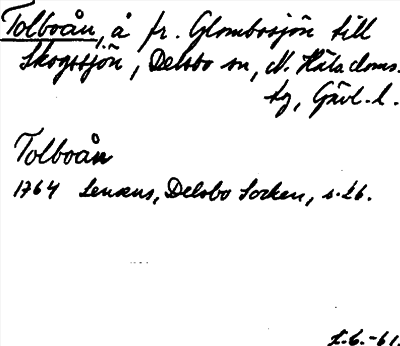 Tolboån, å fr. Glombosjön till
Skogssjön, Delsbo sn, N. Häls. doms.
tg, Gävl. l.
Tolboån
1764 Lenæus, Delsbo Socken, s. 26.
L.C. -61.